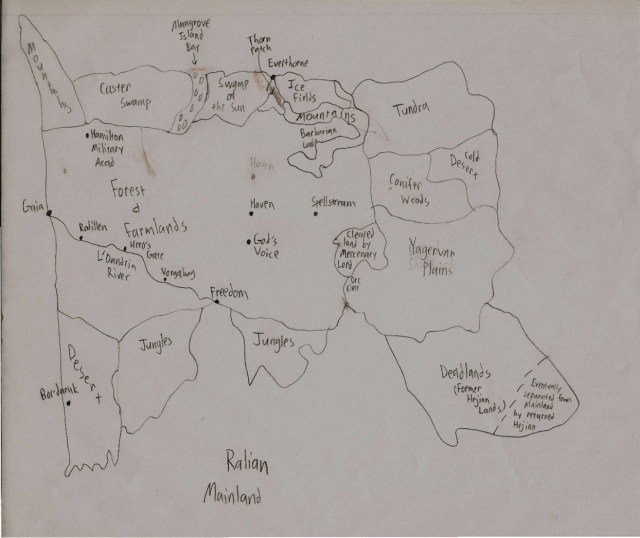 Mountains
Caster
Swamp
Mangrove
Island
Bay
Swamp
of
the Sun
Thorn
Patch
Everthorne
Ice
Fields
Mountains
Barbarian
Tundra
Cold
Desert
Conifer
Woods
Hamilton
Military
Acad
Forest
&
Farmlands
Haven
Haven
Spellstream
God's
Voice
Cleared
land by
Mercenary
Lord
Orc
River
Yagervan
Plains
Gaia
Radillen
Hero's
Gate
L'Dandrin
River
Freedom
Desert
Bordaruk
Jungles
Jungles
Deadlands
(Former
Hejian
Lands)
Eventually
separated from
mainland
by returned
Hejian
Ralian
Mainland